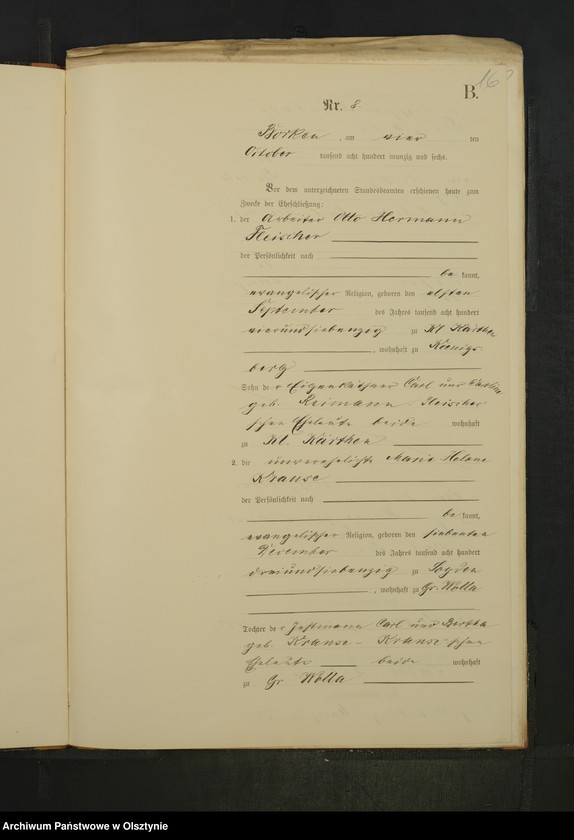 B.
Nr. 8.
Borken, am vier ten
October tausend acht hundert neunzig und sechs.
Vor dem unterzeichneten Standesbeamten erschienen heute zum
Zwecke der Eheschließung:
1. der Arbeiter Otto Hermann
Fleischer
der Persönlichkeit nach
be kannt,
evangelischer Religion, geboren den elften
September des Jahres tausend acht hundert
vierundsiebenzig zu Kl. Kärthen
, wohnhaft zu Koenigs
berg
Sohn der Eigenkäthner Carl und Karoline
geb. Reimann Fleischer
schen Eheleute beide wohnhaft
zu Kl. Kärthen
2. die unverehelichte Maria Helene
Krause
der Persönlichkeit nach
be kannt,
evangelischer Religion, geboren den siebenten
December des Jahres tausend acht hundert
dreiundsiebenzig zu
, wohnhaft zu Gr. Wolla
Tochter der Instmann Carl und Bertha
geb. Krause - Krause'schen
Eheleute beide wohnhaft
zu Gr. Wolla
Archiwum Państwowe w Olsztynie